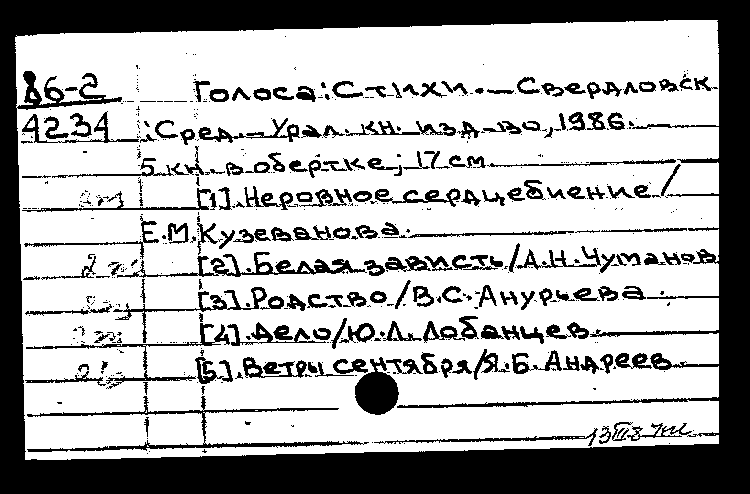 86-2 Голоса: Стихи. — Свердловск
4234 : Сред.-Урал. кн. изд-во, 1986.
5 кн. в обертке; 17 см.
[1]. Неровное сердцебиение /
Е.М. Кузеванова.
[2]. Белая зависть / А.Н. Чуманов
[3]. Родство / В.С. Анурьева.
[4]. Дело / Ю.Л. Лобанцев.
[5]. Ветры сентября / Я.Б. Андреев.